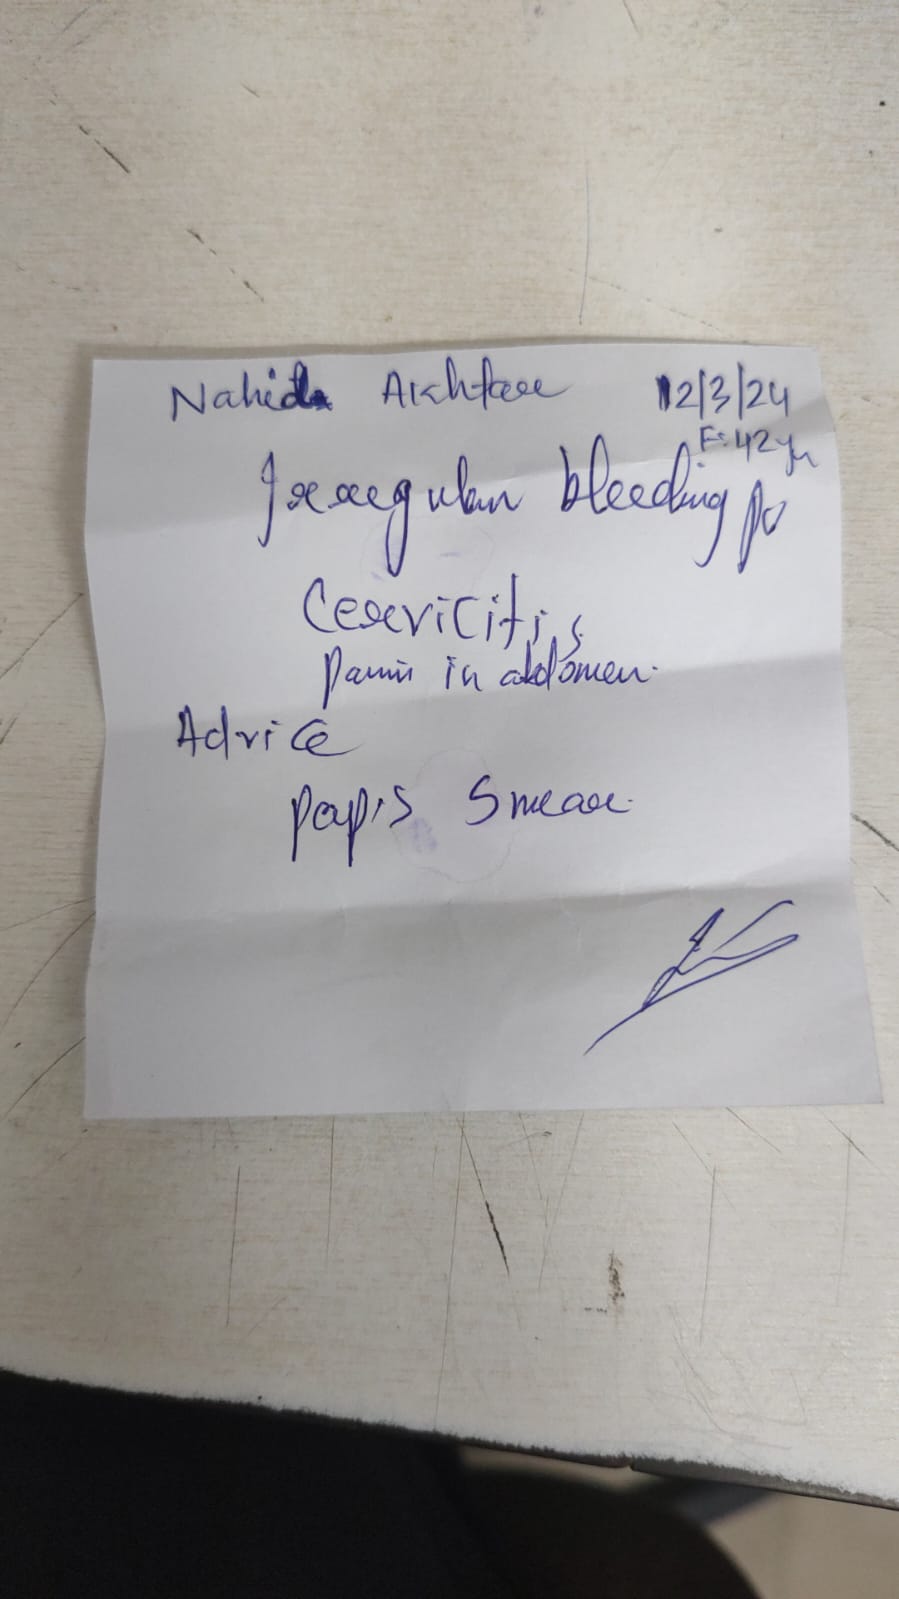 Nahida Akhter 12/3/24
F: 42 yr
Irregular bleeding pv
Cervicitis
Pain in abdomen.
Advice
pap's smear.